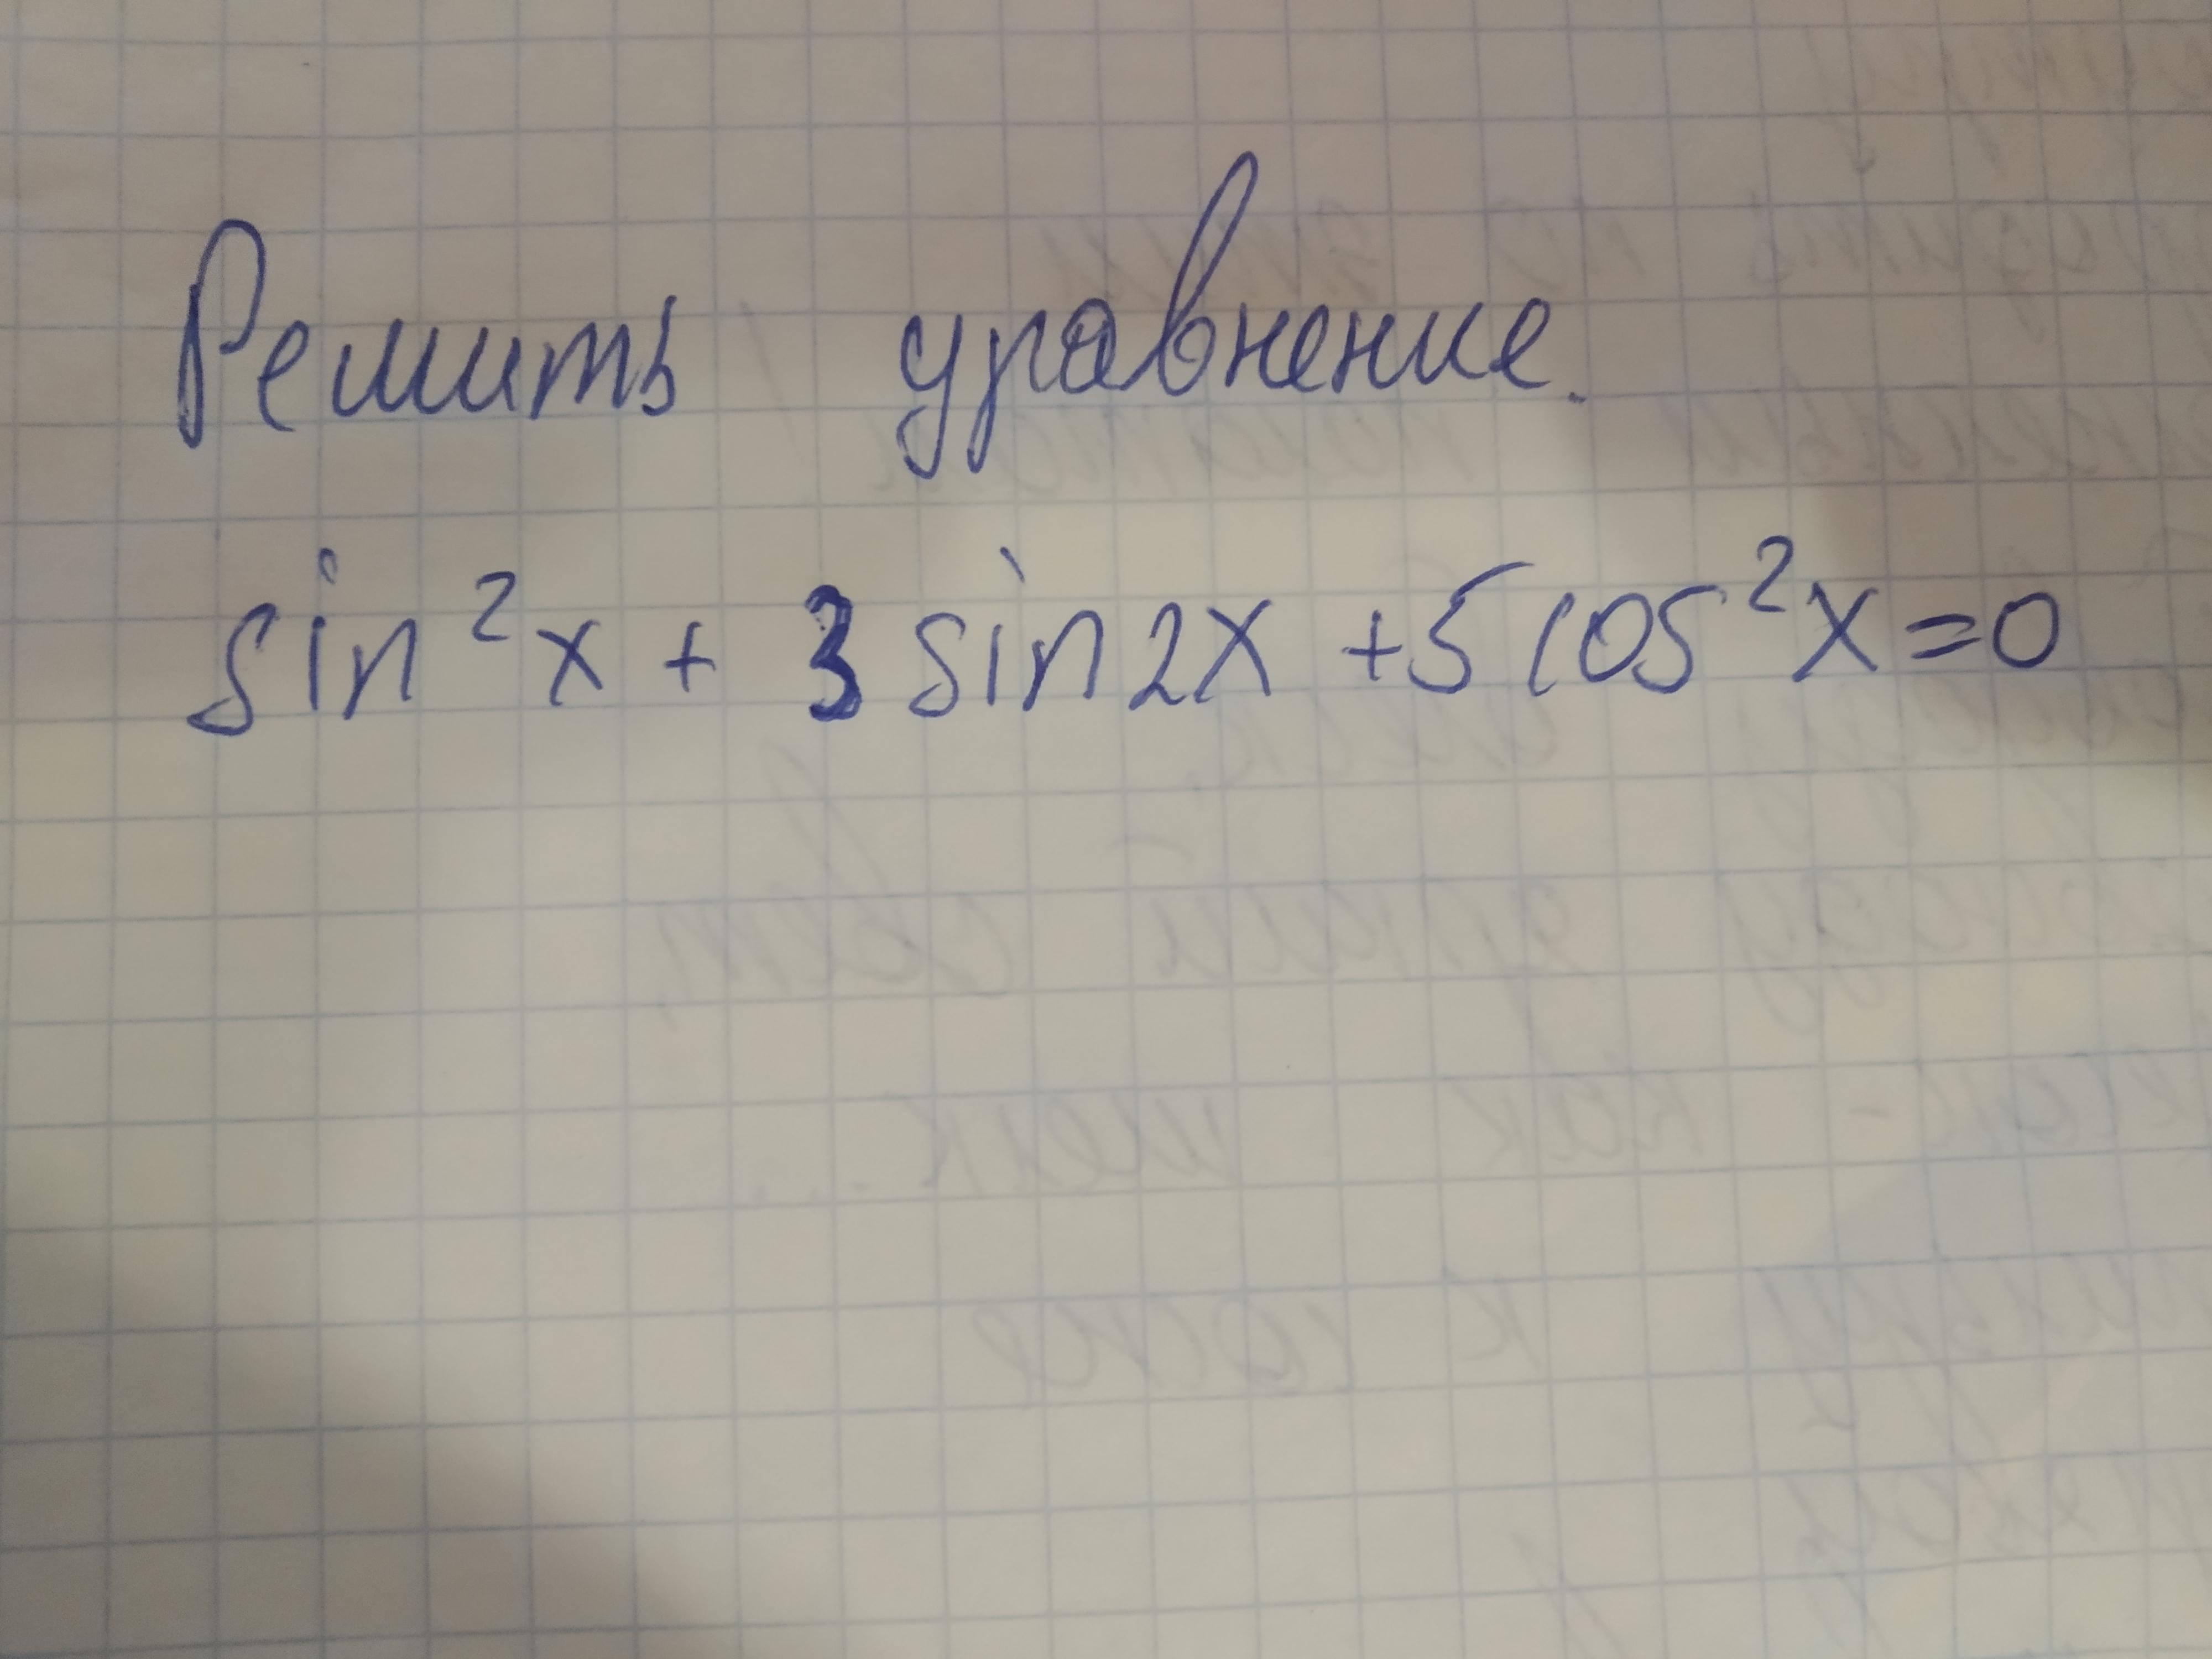 Решить уравнение.
sin²x + 3 sin2x + 5cos²x = 0